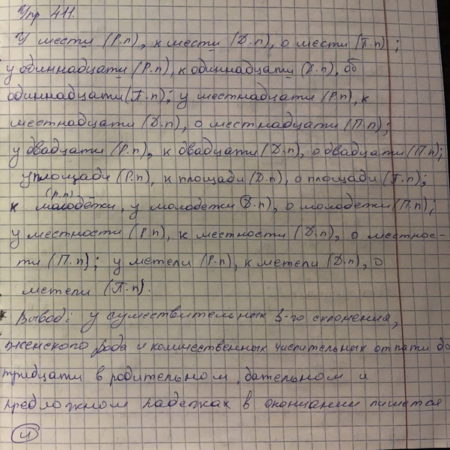 Упр 411.
У мести (Р.п), к мести (Д.п), о мести (П.п);
у одиннадцати (Р.п), к одиннадцати (Д.п), об
одиннадцати (П.п); у шестнадцати (Р.п), к
шестнадцати (Д.п), о шестнадцати (П.п);
у двадцати (Р.п), к двадцати (Д.п), о двадцати (П.п);
у площади (Р.п), к площади (Д.п), о площади (П.п);
(Р.п)
к молодёжи, у молодежи (Д.п), о молодежи (П.п);
у местности (Р.п), к местности (Д.п), о местнос-
ти (П.п); у метели (Р.п), к метели (Д.п), о
метели (П.п).
Вывод: у существительных 3-го склонения,
женского рода и количественных числительных от пяти до
тридцати в родительном, дательном и
предложном падежах в окончании пишется
и